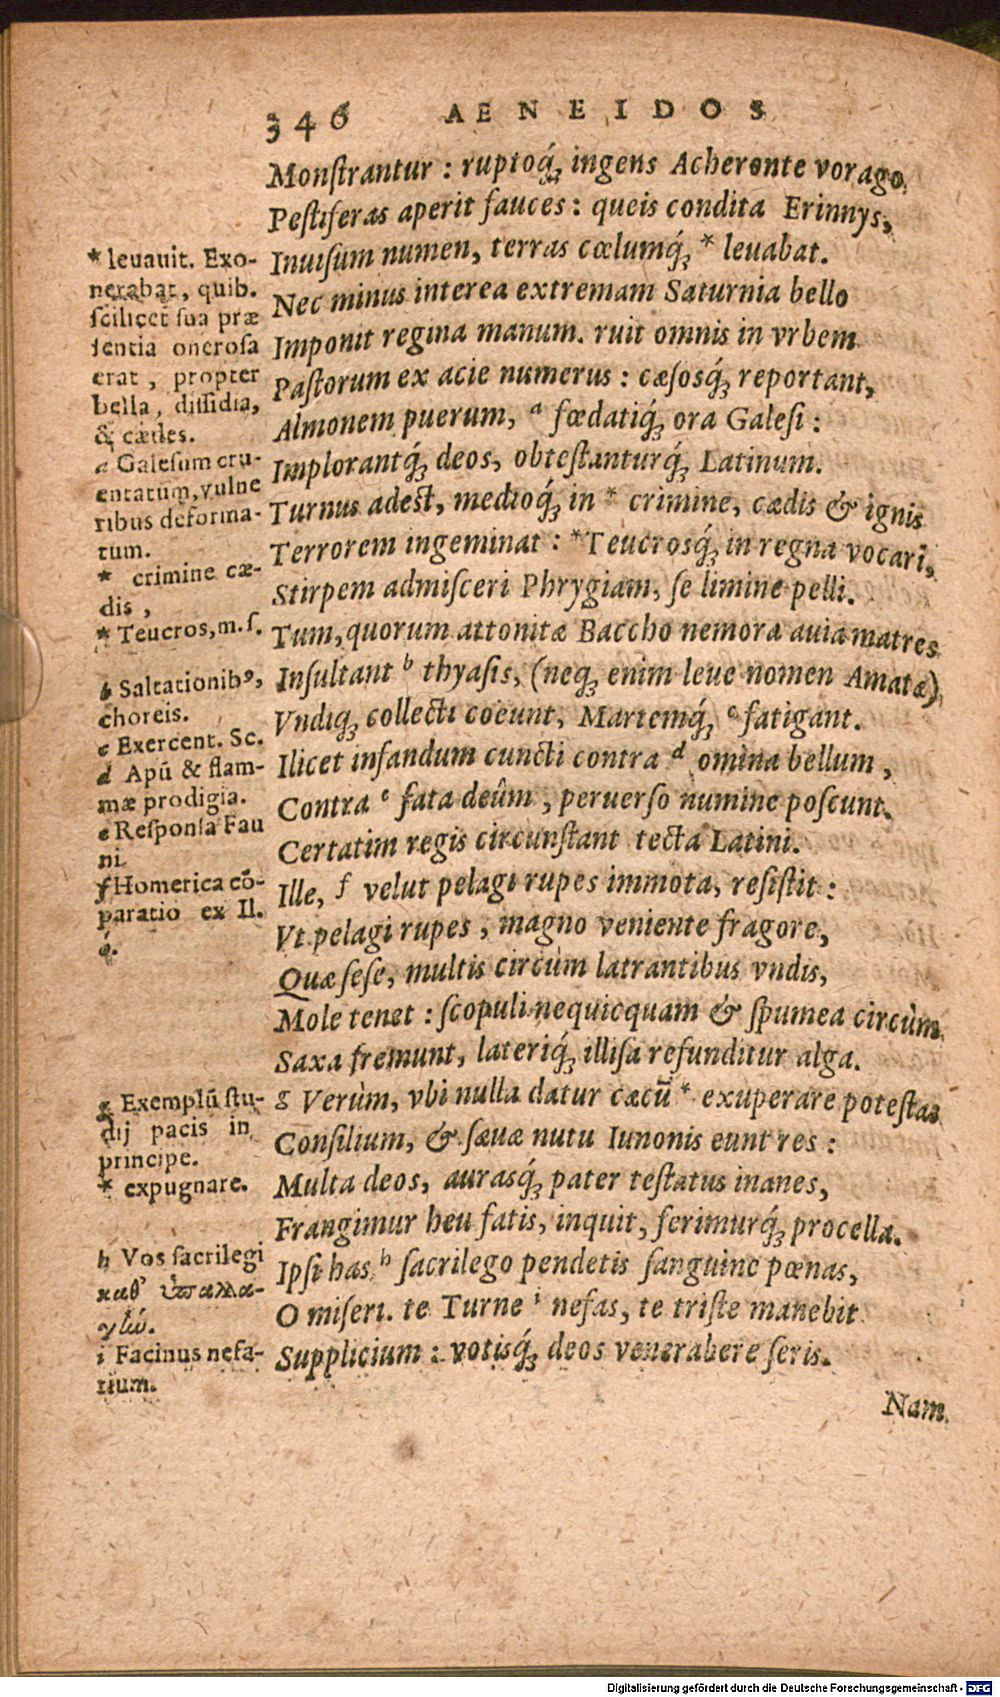 346 AENEIDOS
Monſtrantur : ruptoq́ꝫ ingens Acheronte vorago
Peſtiferas aperit fauces : queis condita Erinnys,
Inuiſum numen, terras cœlumq́ꝫ * leuabat.
Nec minus interea extremam Saturnia bello
Imponit regina manum. ruit omnis in vrbem
Paſtorum ex acie numerus : cæſosq́ꝫ reportant,
Almonem puerum, a fœdatiq́ꝫ ora Galeſi :
Implorantq́ꝫ deos, obteſtanturq́ꝫ Latinum.
Turnus adeſt, medioq́ꝫ in * crimine, cædis & ignis
Terrorem ingeminat : *Teucrosq́ꝫ in regna vocari,
Stirpem admiſceri Phrygiam, ſe limine pelli.
Tum, quorum attonitæ Baccho nemora auia matres
Inſultant b thyaſis, (neqꝫ enim leue nomen Amatæ)
Vndiqꝫ collecti coeunt, Martemq́ꝫ c fatigant.
Ilicet infandum cuncti contra d omina bellum ,
Contra e fata deûm , peruerſo numine poſcunt.
Certatim regis circunſtant tecta Latini.
Ille, f velut pelagi rupes immota, reſiſtit :
Vt pelagi rupes , magno veniente fragore,
Quæ ſeſe, multis circùm latrantibus vndis,
Mole tenet : ſcopuli nequicquam & ſpumea circùm
Saxa fremunt, lateriq́ꝫ illiſa refunditur alga.
g Verùm, vbi nulla datur cæcū * exuperare poteſtas
Conſilium, & ſæuæ nutu Iunonis eunt res :
Multa deos, aurasq́ꝫ pater teſtatus inanes,
Frangimur heu fatis, inquit, ferimurq́ꝫ procella.
Ipſi has h ſacrilego pendetis ſanguine pœnas,
O miſeri. te Turne i nefas, te triſte manebit
Supplicium : votisq́ꝫ deos venerabere ſeris.
Nam
* leuauit. Exo-
nerabat, quib.
ſcilicet ſua præ
ſentia oneroſa
erat , propter
bella, diſſidia,
& cædes.
a Galeſum cru-
entatum, vulne
ribus deforma-
tum.
* crimine cæ-
dis ,
* Teucros, m. ſ.
b Saltationibꝰ,
choreis.
c Exercent. Sc.
d Apū & flam-
mæ prodigia.
e Reſponſa Fau
ni
f Homerica cō-
paratio ex Il.
ό.
g Exemplū ſtu-
dij pacis in
principe.
* expugnare.
h Vos ſacrilegi
καθ' ὑπαλλα-
γὴν.
i Facinus nefa-
rium.
Digitalisierung gefördert durch die Deutsche Forschungsgemeinschaft - DFG